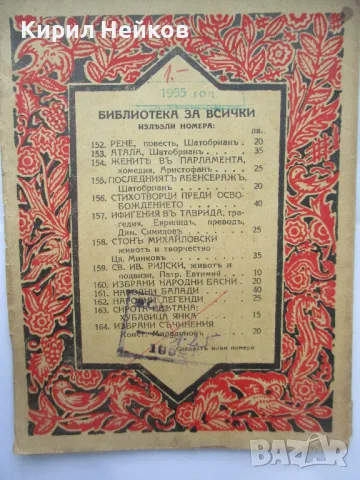 Кирил Нейков
1.—
1955 год.
БИБЛИОТЕКА ЗА ВСИЧКИ
ИЗЛѢЗЛИ НОМЕРА:
лв.
152. РЕНЕ, повесть, Шатобрианъ . 20
153. АТАЛА, Шатобрианъ . . . 35
154. ЖЕНИТѢ ВЪ ПАРЛАМЕНТА,
комедия, Аристофанъ . . . 25
155. ПОСЛЕДНИЯТЪ АБЕНСЕРАЖЪ,
Шатобрианъ . . . 20
156. СТИХОТВОРЦИ ПРЕДИ ОСВО-
БОЖДЕНИЕТО . . . 40
157. ИФИГЕНИЯ ВЪ ТАВРИДА, тра-
гедия, Еврипидъ, преводъ,
Дим. Симидовъ . . . 25
158. СТОЯНЪ МИХАЙЛОВСКИ
животъ и творчество
Цв. Минковъ . . . 35
159. СВ. ИВ. РИЛСКИ, животъ и
подвизи, Патр. Евтимий . . 10
160. ИЗБРАНИ НАРОДНИ БАСНИ . 20
161. НАРОДНИ БАЛАДИ . . . 40
162. НАРОДНИ ЛЕГЕНДИ . . . 25
163. СИРОТА
ХУБАВИЦА ЯНКА . . . 15
164. ИЗБРАНИ СЪЧИНЕНИЯ
Конст. Миладиновъ . . . 20
Следватъ нови номера
BAZAR